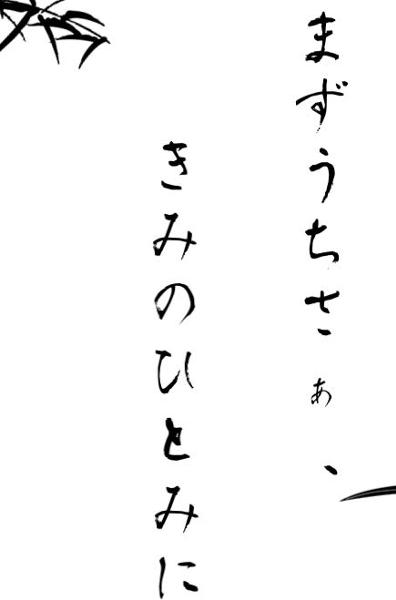 まずうちさぁ、
きみのひとみに